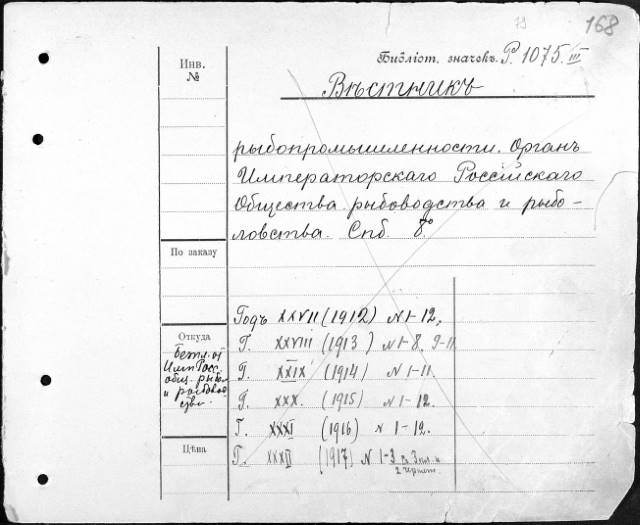 168
Библіот. значекъ. Р. 1075. III
Инв.
№
Вѣстникъ
рыбопромышленности. Органъ
Императорскаго Россійскаго
Общества рыбоводства и рыбо-
ловства. Спб. 8°
По заказу
Годъ XXVII (1912) N 1-12,
Г. XXVIII (1913) N 1-8, 9-11
Г. XXIX (1914) N 1-11.
Г. XXX. (1915) N 1-12.
Г. XXXI (1916) N 1-12.
Г. XXXII (1917) N 1-3
Откуда
Безпл. от
Имп Росс.
общ. рыбол
и рыбовод
ства.
Цѣна